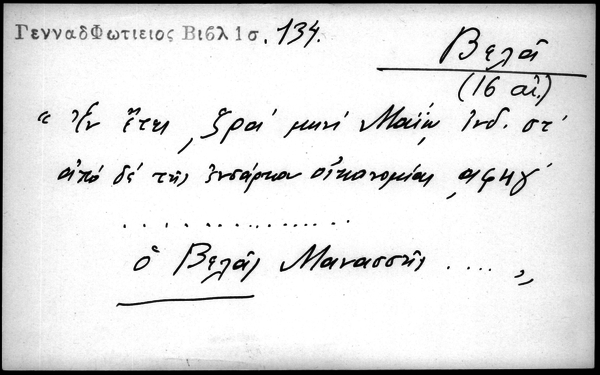 ΓενναδΦωτιειος Βιβλ 1σ. 134.
Βελᾶ
(16 αἰ.)
« Ἐν ἔτει ͵ζρα΄ μηνὶ Μαΐῳ, ἰνδ. στ΄
ἀπὸ δὲ τῆς ἐνσάρκου οἰκονομίας ͵αφϟγ΄
..................
ὁ Βελᾶς Μανασσῆς .... »